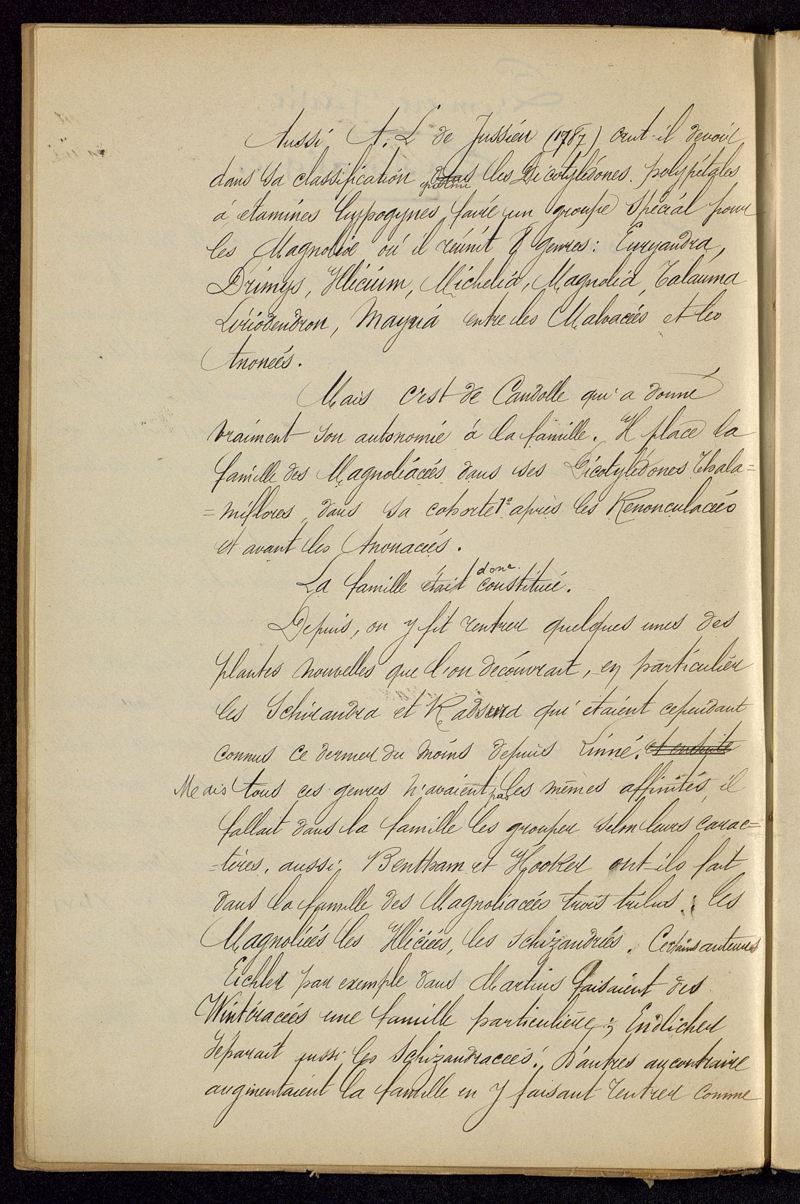 Aussi A. L. de Jussieu (1787) crut-il devoir
dans sa classification dans les Dicotylédones polypétales
à étamines hypogynes faire un groupe spécial pour
les Magnoliae où il réunit 8 genres : Euryandra,
Drimys, Illicium, Michelia, Magnolia, Talauma
Liriodendron, Mayna entre les Malvacées et les
Anonées.
Mais c'est de Candolle qui a donné
vraiment son autonomie à la famille. Il place la
famille des Magnoliacées dans ses Dicotylédones Thala=
=miflores, dans sa cohorte 1e après les Renonculacées
et avant les Anonacées.
La famille était donc constituée.
Depuis, on y fit rentrer quelques unes des
plantes nouvelles que l'on découvrait, en particulier
les Schizandra et Kadsura qui étaient cependant
connus ce dernier du moins depuis Linné. et ensuite
Mais tous ces genres n'avaient pas les mêmes affinités, il
fallait dans la famille les grouper selon leurs carac=
=tères, aussi Bentham et Hooker ont-ils fait
dans la famille des Magnoliacées trois tribus : les
Magnoliées les Illiciées, les Schizandrées. Certains auteurs
Eichler par exemple dans Martius faisaient des
Wintéracées une famille particulière ; Endlicher
séparait aussi les Schizandracées. D'autres au contraire
augmentaient la famille en y faisant rentrer comme